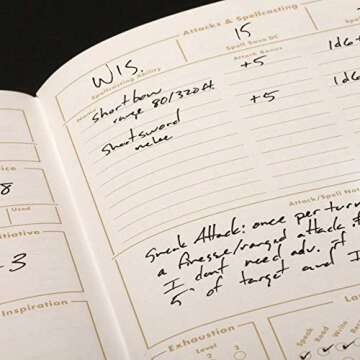 Attacks & Spellcasting
WIS. 15
Spellcasting Ability Spell Save DC
Name Attack Bonus
Shortbow +5 1d6+
range 80/320 ft.
Shortsword +5 1d6
melee
Attack/Spell Not
Sneak Attack: once per turn
a finesse/ranged attack
I don't need adv. if
5' of target and I
8
Used
Initiative
3
Inspiration
Exhaustion
Level
Speak
Read
Write